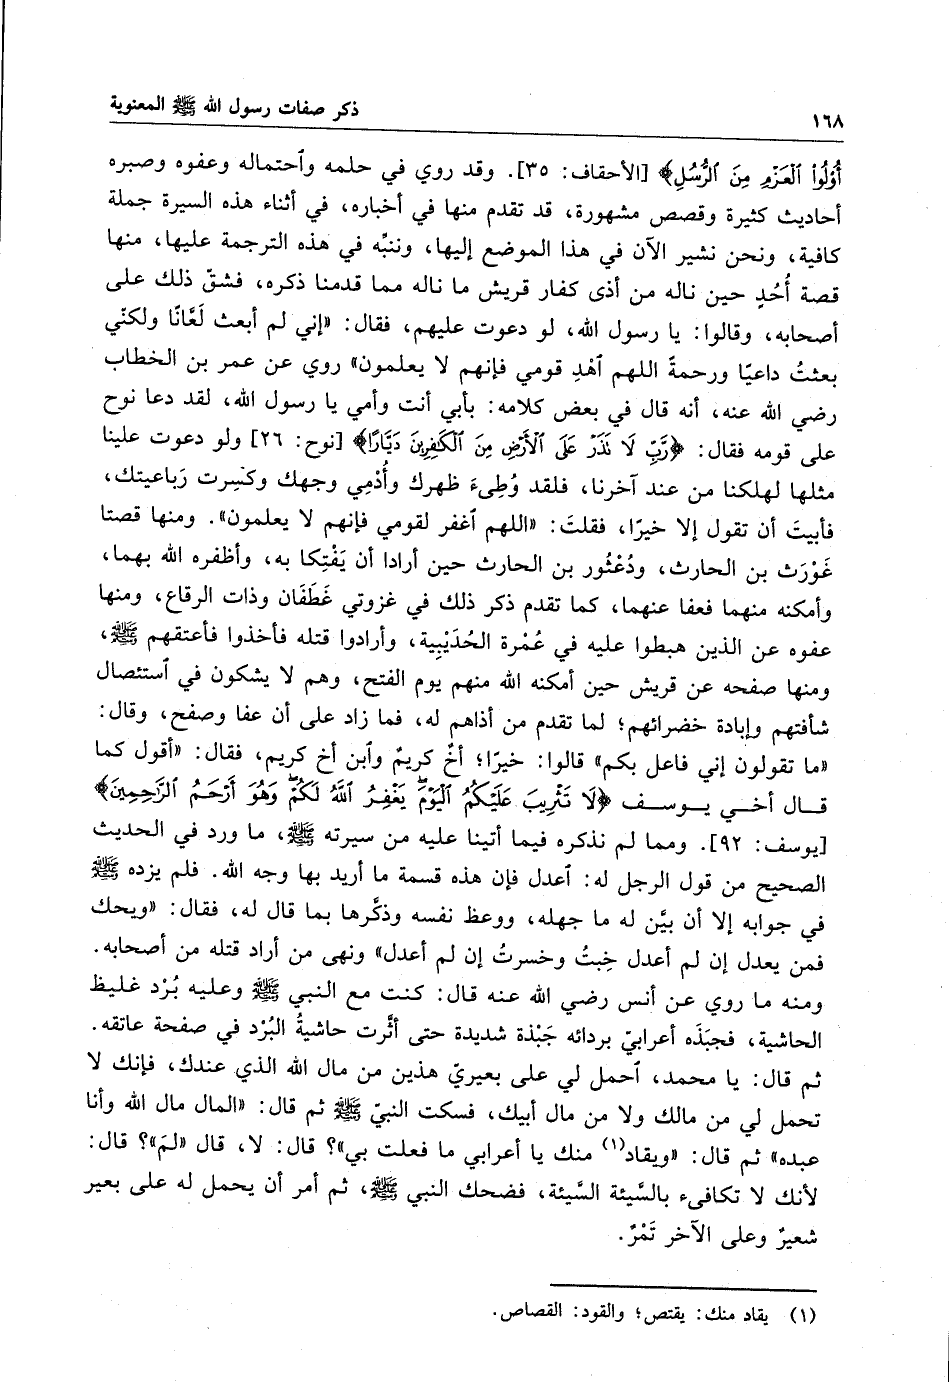 ١٦٨ ذكر صفات رسول الله ﷺ المعنوية
أُوْلُواْ ٱلْعَزْمِ مِنَ ٱلرُّسُلِ﴾ [الأحقاف: ٣٥]. وقد روي في حلمه وٱحتماله وعفوه وصبره
أحاديث كثيرة وقصص مشهورة، قد تقدم منها في أخباره، في أثناء هذه السيرة جملة
كافية، ونحن نشير الآن في هذا الموضع إليها، وننبِّه في هذه الترجمة عليها، منها
قصة أُحُدٍ حين ناله من أذى كفار قريش ما ناله مما قدمنا ذكره، فشقّ ذلك على
أصحابه، وقالوا: يا رسول الله، لو دعوت عليهم، فقال: «إني لم أبعث لَعَّانًا ولكنّي
بعثتُ داعيًا ورحمةً اللهم ٱهْدِ قومي فإنهم لا يعلمون» روي عن عمر بن الخطاب
رضي الله عنه، أنه قال في بعض كلامه: بأبي أنت وأمي يا رسول الله، لقد دعا نوح
على قومه فقال: ﴿رَّبِّ لَا تَذَرْ عَلَى ٱلْأَرْضِ مِنَ ٱلْكَٰفِرِينَ دَيَّارًا﴾ [نوح: ٢٦] ولو دعوت علينا
مثلها لهلكنا من عند آخرنا، فلقد وُطِىءَ ظهرك وأُدْمِي وجهك وكسِرت رَباعيتك،
فأبيتَ أن تقول إلا خيرًا، فقلتَ: «اللهم ٱغفر لقومي فإنهم لا يعلمون». ومنها قصتا
غَوْرَث بن الحارث، ودُعْثُور بن الحارث حين أرادا أن يَفْتِكا به، وأظفره الله بهما،
وأمكنه منهما فعفا عنهما، كما تقدم ذكر ذلك في غزوتي غَطَفَان وذات الرقاع، ومنها
عفوه عن الذين هبطوا عليه في عُمْرة الحُدَيْبِية، وأرادوا قتله فأخذوا فأعتقهم ﷺ،
ومنها صفحه عن قريش حين أمكنه الله منهم يوم الفتح، وهم لا يشكون في ٱستئصال
شأفتهم وإبادة خضرائهم؛ لما تقدم من أذاهم له، فما زاد على أن عفا وصفح، وقال:
«ما تقولون إني فاعل بكم» قالوا: خيرًا؛ أخٌ كريمٌ وٱبن أخ كريم، فقال: «أقول كما
قال أخي يوسف ﴿لَا تَثْرِيبَ عَلَيْكُمُ ٱلْيَوْمَ يَغْفِرُ ٱللَّهُ لَكُمْ وَهُوَ أَرْحَمُ ٱلرَّٰحِمِينَ﴾
[يوسف: ٩٢]. ومما لم نذكره فيما أتينا عليه من سيرته ﷺ، ما ورد في الحديث
الصحيح من قول الرجل له: ٱعدل فإن هذه قسمة ما أريد بها وجه الله. فلم يزده ﷺ
في جوابه إلا أن بيَّن له ما جهله، ووعظ نفسه وذكَّرها بما قال له، فقال: «ويحك
فمن يعدل إن لم أعدل خِبتُ وخسرتُ إن لم أعدل» ونهى من أراد قتله من أصحابه.
ومنه ما روي عن أنس رضي الله عنه قال: كنت مع النبي ﷺ وعليه بُرْد غليظ
الحاشية، فجبَذَه أعرابيّ بردائه جَبْذة شديدة حتى أثَّرت حاشيةُ البُرْد في صفحة عاتقه.
ثم قال: يا محمد، ٱحمل لي على بعيريّ هذين من مال الله الذي عندك، فإنك لا
تحمل لي من مالك ولا من مال أبيك، فسكت النبيّ ﷺ ثم قال: «المال مال الله وأنا
عبده» ثم قال: «ويقاد(١) منك يا أعرابي ما فعلت بي»؟ قال: لا، قال «لمَ»؟ قال:
لأنك لا تكافىء بالسَّيئة السَّيئة، فضحك النبي ﷺ، ثم أمر أن يحمل له على بعير
شعيرٌ وعلى الآخر تَمْرٌ.
(١) يقاد منك: يقتص؛ والقود: القصاص.